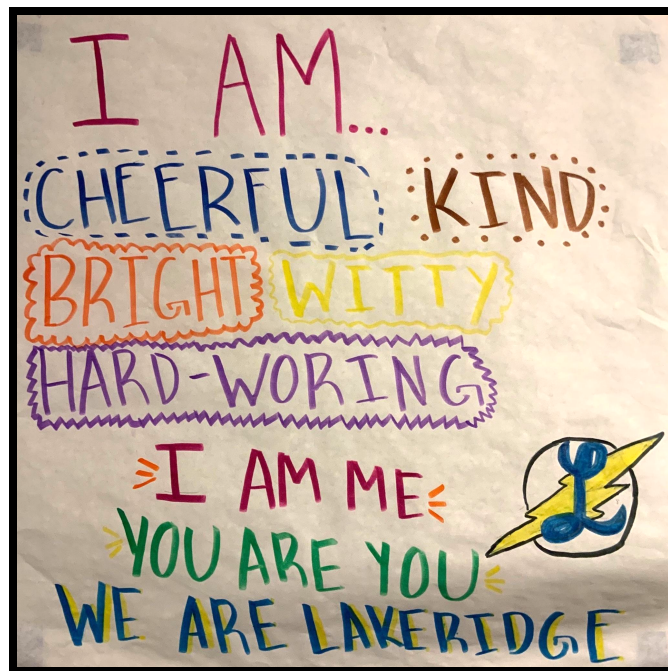 I AM...
CHEERFUL KIND
BRIGHT WITTY
HARD-WORING
I AM ME
L
YOU ARE YOU
WE ARE LAKERIDGE